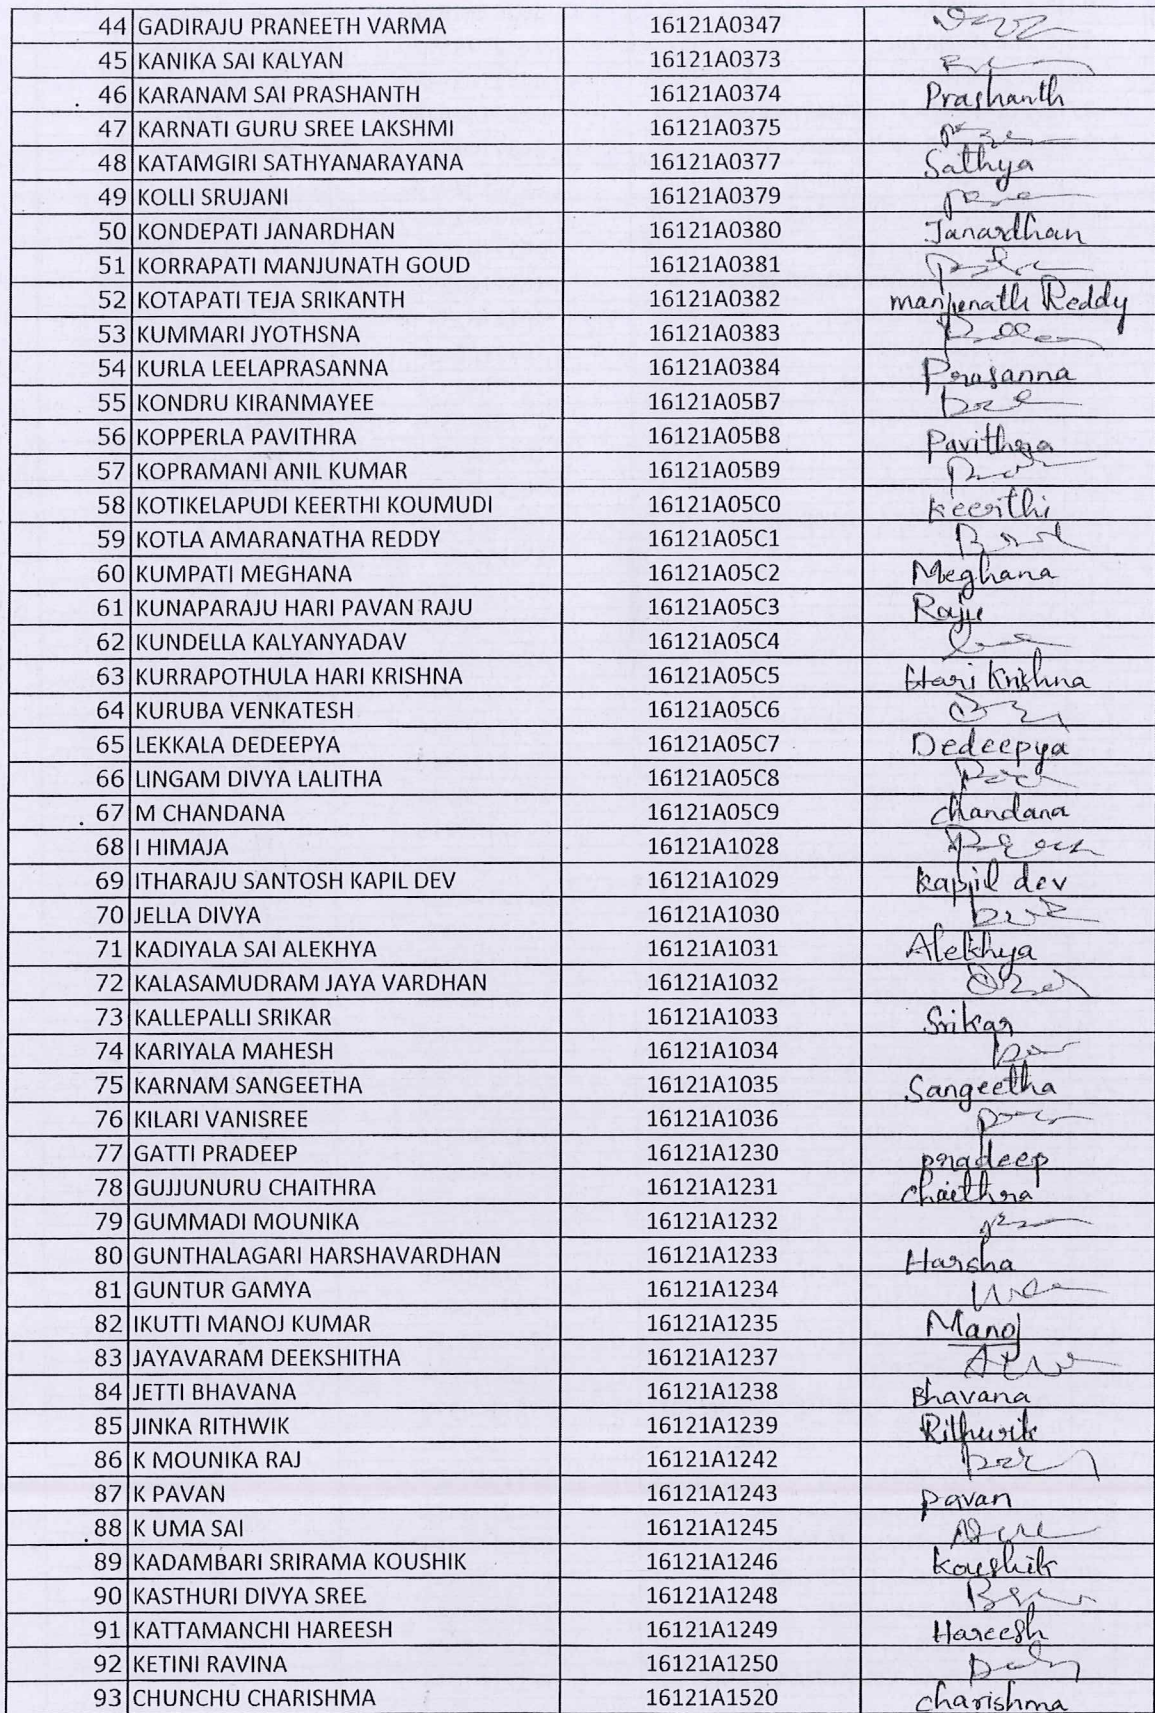 44 GADIRAJU PRANEETH VARMA 16121A0347
45 KANIKA SAI KALYAN 16121A0373
46 KARANAM SAI PRASHANTH 16121A0374 Prashanth
47 KARNATI GURU SREE LAKSHMI 16121A0375
48 KATAMGIRI SATHYANARAYANA 16121A0377 Sathya
49 KOLLI SRUJANI 16121A0379
50 KONDEPATI JANARDHAN 16121A0380 Janardhan
51 KORRAPATI MANJUNATH GOUD 16121A0381
52 KOTAPATI TEJA SRIKANTH 16121A0382 manjunath Reddy
53 KUMMARI JYOTHSNA 16121A0383
54 KURLA LEELAPRASANNA 16121A0384 Prasanna
55 KONDRU KIRANMAYEE 16121A05B7
56 KOPPERLA PAVITHRA 16121A05B8 Pavithra
57 KOPRAMANI ANIL KUMAR 16121A05B9
58 KOTIKELAPUDI KEERTHI KOUMUDI 16121A05C0 Keerthi
59 KOTLA AMARANATHA REDDY 16121A05C1
60 KUMPATI MEGHANA 16121A05C2 Meghana
61 KUNAPARAJU HARI PAVAN RAJU 16121A05C3 Raju
62 KUNDELLA KALYANYADAV 16121A05C4
63 KURRAPOTHULA HARI KRISHNA 16121A05C5 Hari Krishna
64 KURUBA VENKATESH 16121A05C6
65 LEKKALA DEDEEPYA 16121A05C7 Dedeepya
66 LINGAM DIVYA LALITHA 16121A05C8
67 M CHANDANA 16121A05C9 chandana
68 I HIMAJA 16121A1028
69 ITHARAJU SANTOSH KAPIL DEV 16121A1029 kapil dev
70 JELLA DIVYA 16121A1030
71 KADIYALA SAI ALEKHYA 16121A1031 Alekhya
72 KALASAMUDRAM JAYA VARDHAN 16121A1032
73 KALLEPALLI SRIKAR 16121A1033 Srikar
74 KARIYALA MAHESH 16121A1034
75 KARNAM SANGEETHA 16121A1035 Sangeetha
76 KILARI VANISREE 16121A1036
77 GATTI PRADEEP 16121A1230 pradeep
78 GUJJUNURU CHAITHRA 16121A1231 chaithra
79 GUMMADI MOUNIKA 16121A1232
80 GUNTHALAGARI HARSHAVARDHAN 16121A1233 Harsha
81 GUNTUR GAMYA 16121A1234
82 IKUTTI MANOJ KUMAR 16121A1235 Manoj
83 JAYAVARAM DEEKSHITHA 16121A1237
84 JETTI BHAVANA 16121A1238 Bhavana
85 JINKA RITHWIK 16121A1239 Rithwik
86 K MOUNIKA RAJ 16121A1242
87 K PAVAN 16121A1243 pavan
88 K UMA SAI 16121A1245
89 KADAMBARI SRIRAMA KOUSHIK 16121A1246 Koushik
90 KASTHURI DIVYA SREE 16121A1248
91 KATTAMANCHI HAREESH 16121A1249 Hareesh
92 KETINI RAVINA 16121A1250
93 CHUNCHU CHARISHMA 16121A1520 charishma